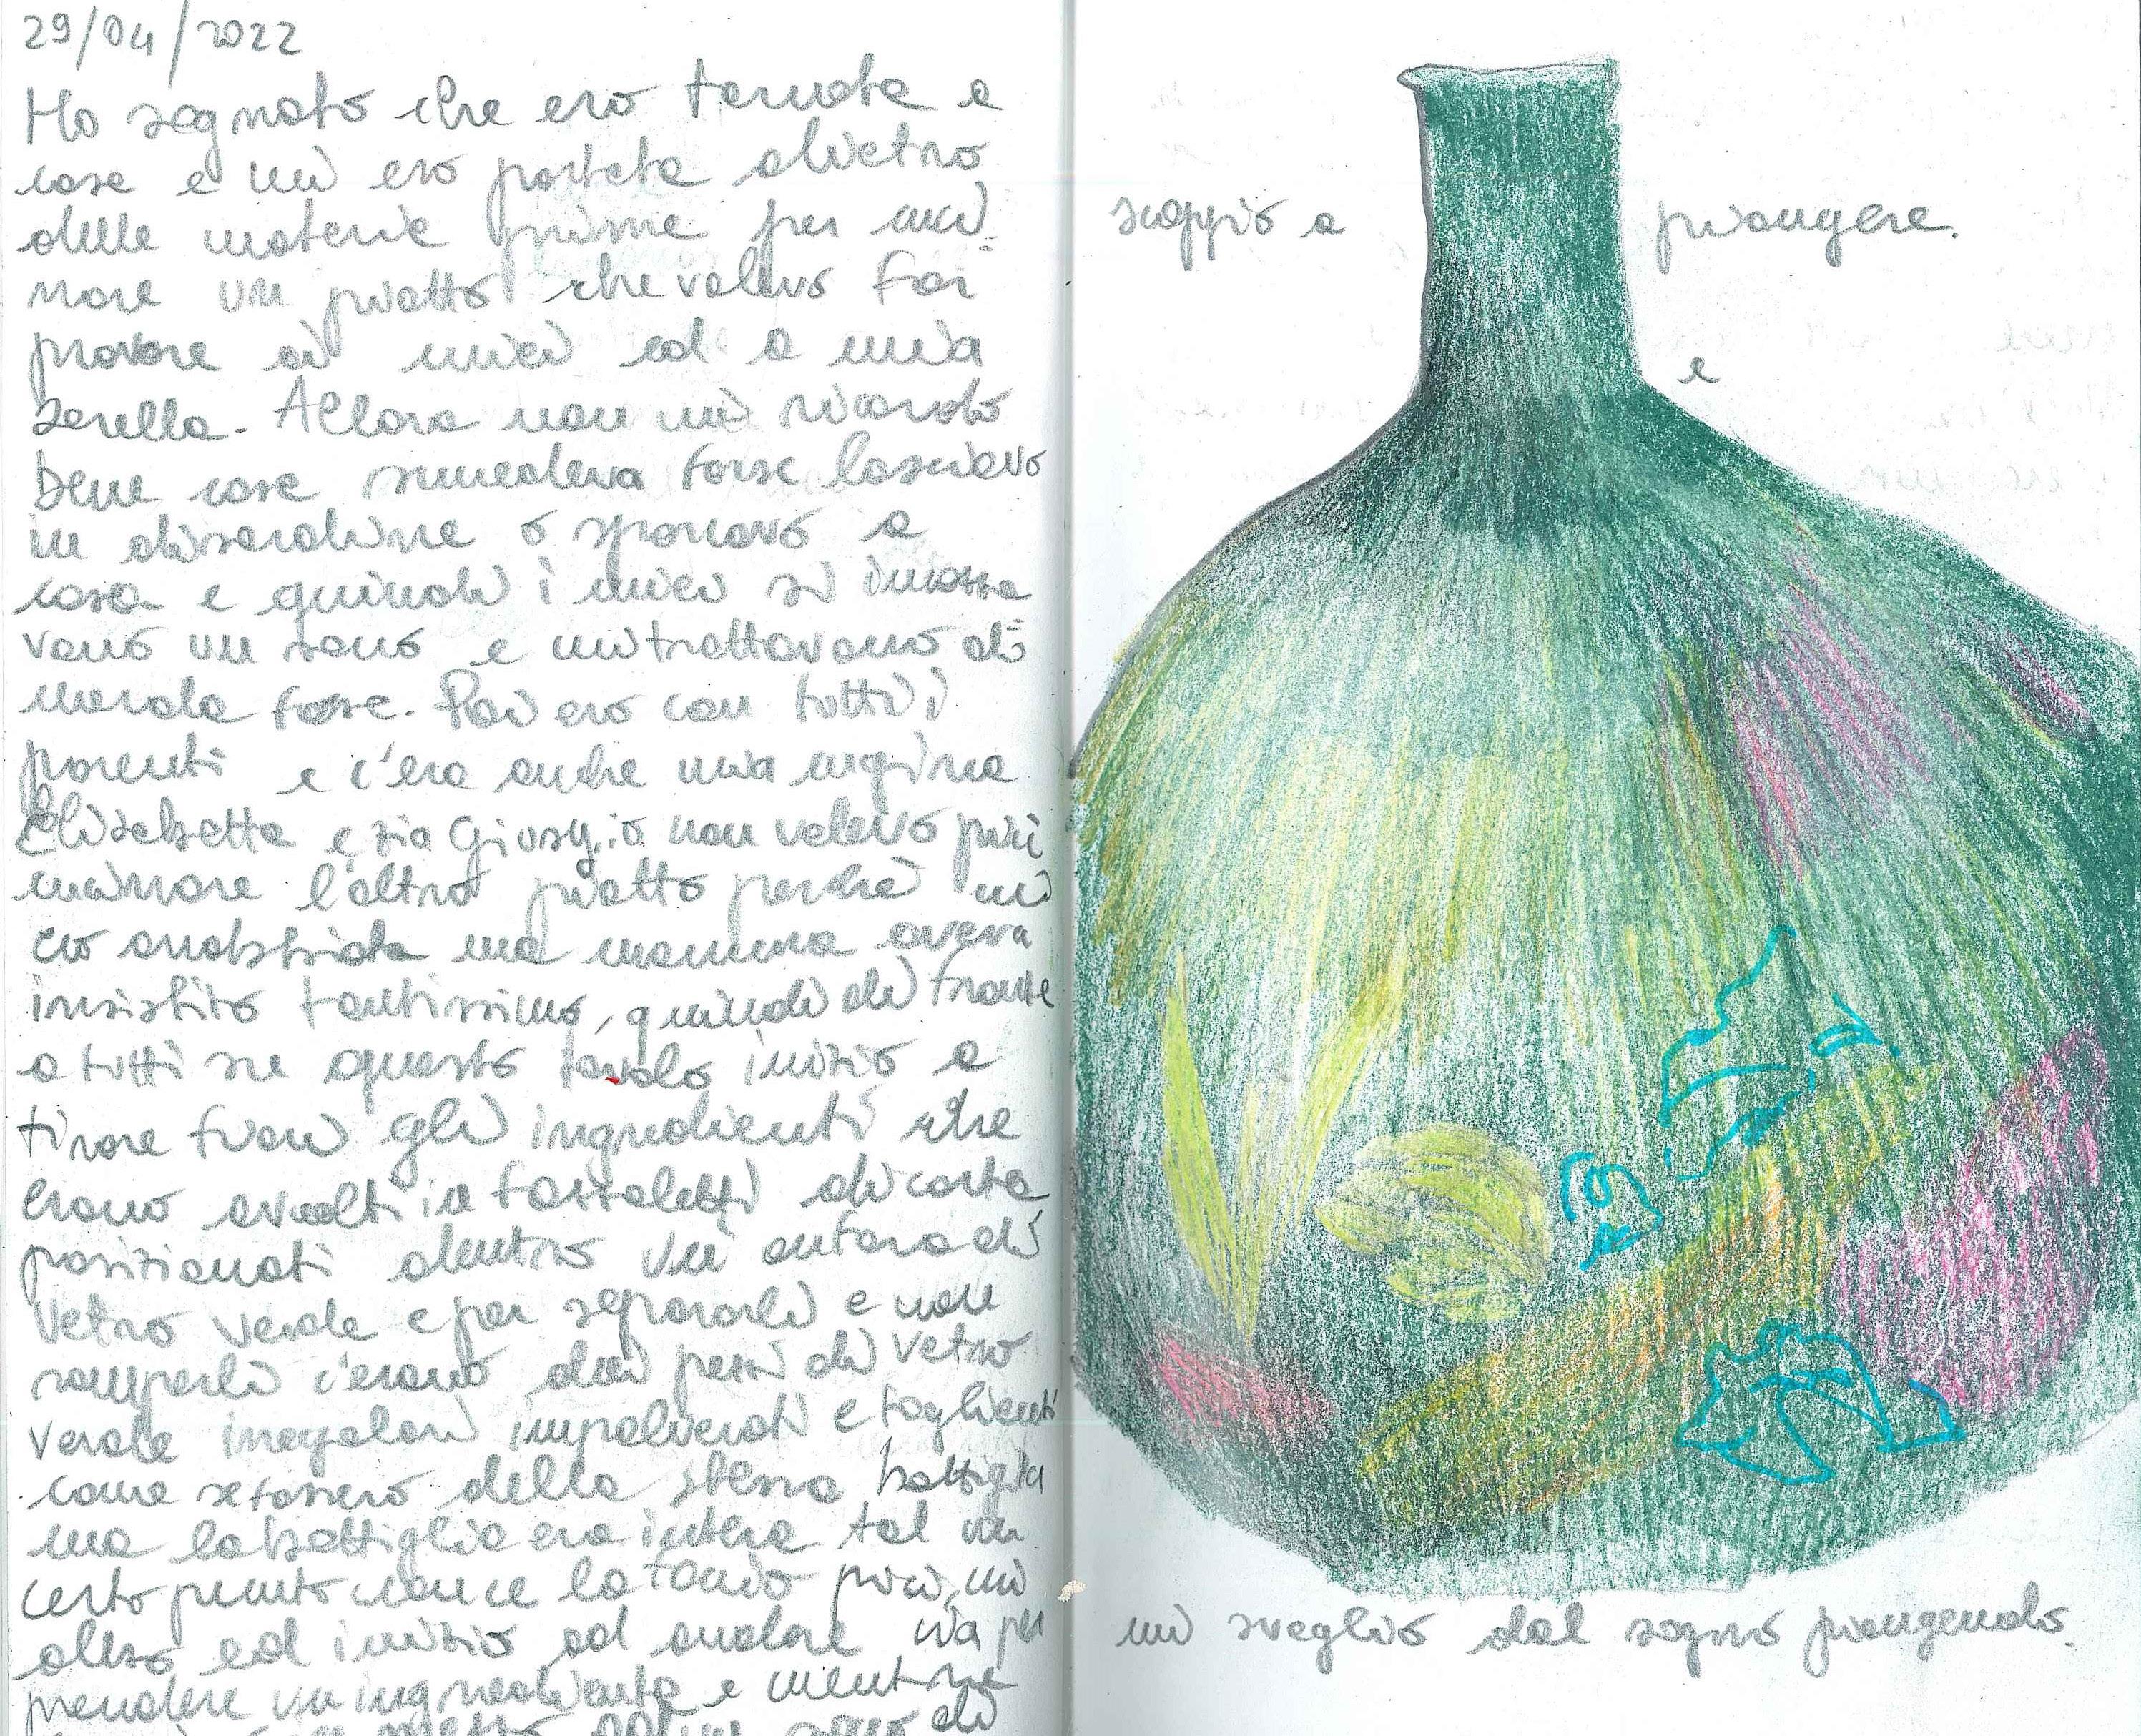 29/04/2022
Ho sognato che ero tornata a
casa e mi ero portata dietro
delle materie prime per cuci
nare un piatto che volevo far
provare ai miei ed a mia
sorella. Allora non mi ricordo
bene cosa succedeva forse lasciavo
in disordine o sporcavo a
casa e quindi i miei si incazza
vano un sacco e mi trattavano di
merda forse. Poi ero con tutti i
parenti e c'era anche mia cugina
Elisabetta e zio Giorgio non volevo più
cucinare l'altro piatto perché mi
ero arrabbiata ma mamma aveva
insistito tantissimo, quindi di fronte
a tutti su questo tavolo inizio a
tirare fuori gli ingredienti che
erano avvolti in fazzoletti di carta
posizionati dentro un anfora di
vetro verde e per separarli e non
romperli c'erano dei pezzi di vetro
verde irregolari impolverati e taglienti
come se fossero della stessa bottiglia
ma la bottiglia era intera tal un
certo punto non ce la faccio più, mi
alzo ed inizio ad andare via per
prendere un ingrediente e mentre
di
scoppio a piangere.
e
mi sveglio dal sogno piangendo.